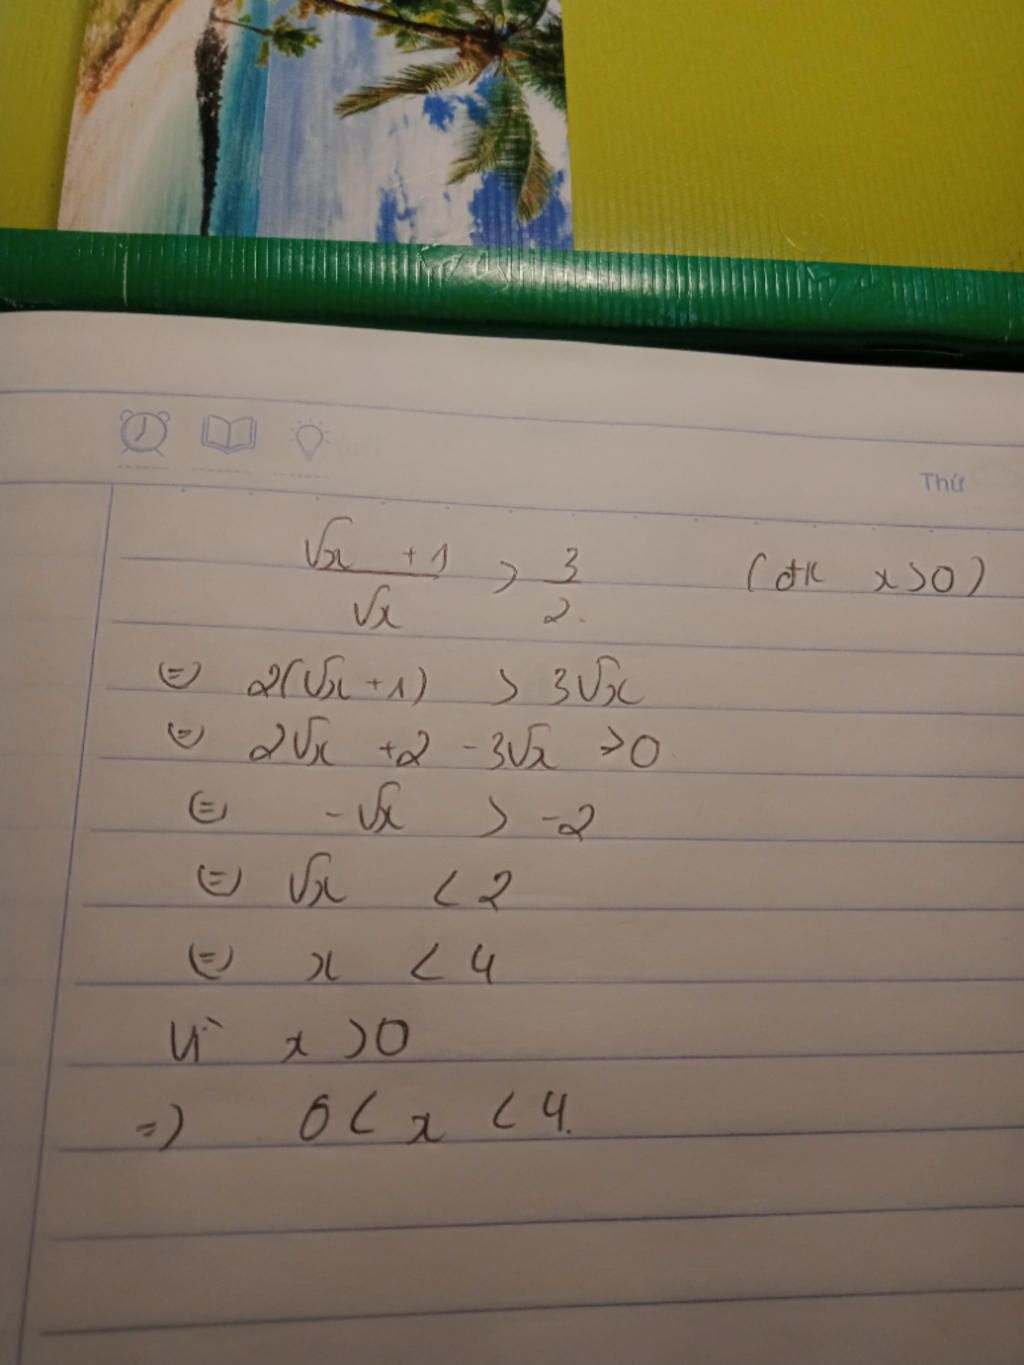 Thứ
(√x + 1)/√x > 3/2. (đk x>0)
⇔ 2(√x + 1) > 3√x
⇔ 2√x + 2 - 3√x > 0
⇔ -√x > -2
⇔ √x < 2
⇔ x < 4
Vì x > 0
=> 0 < x < 4.